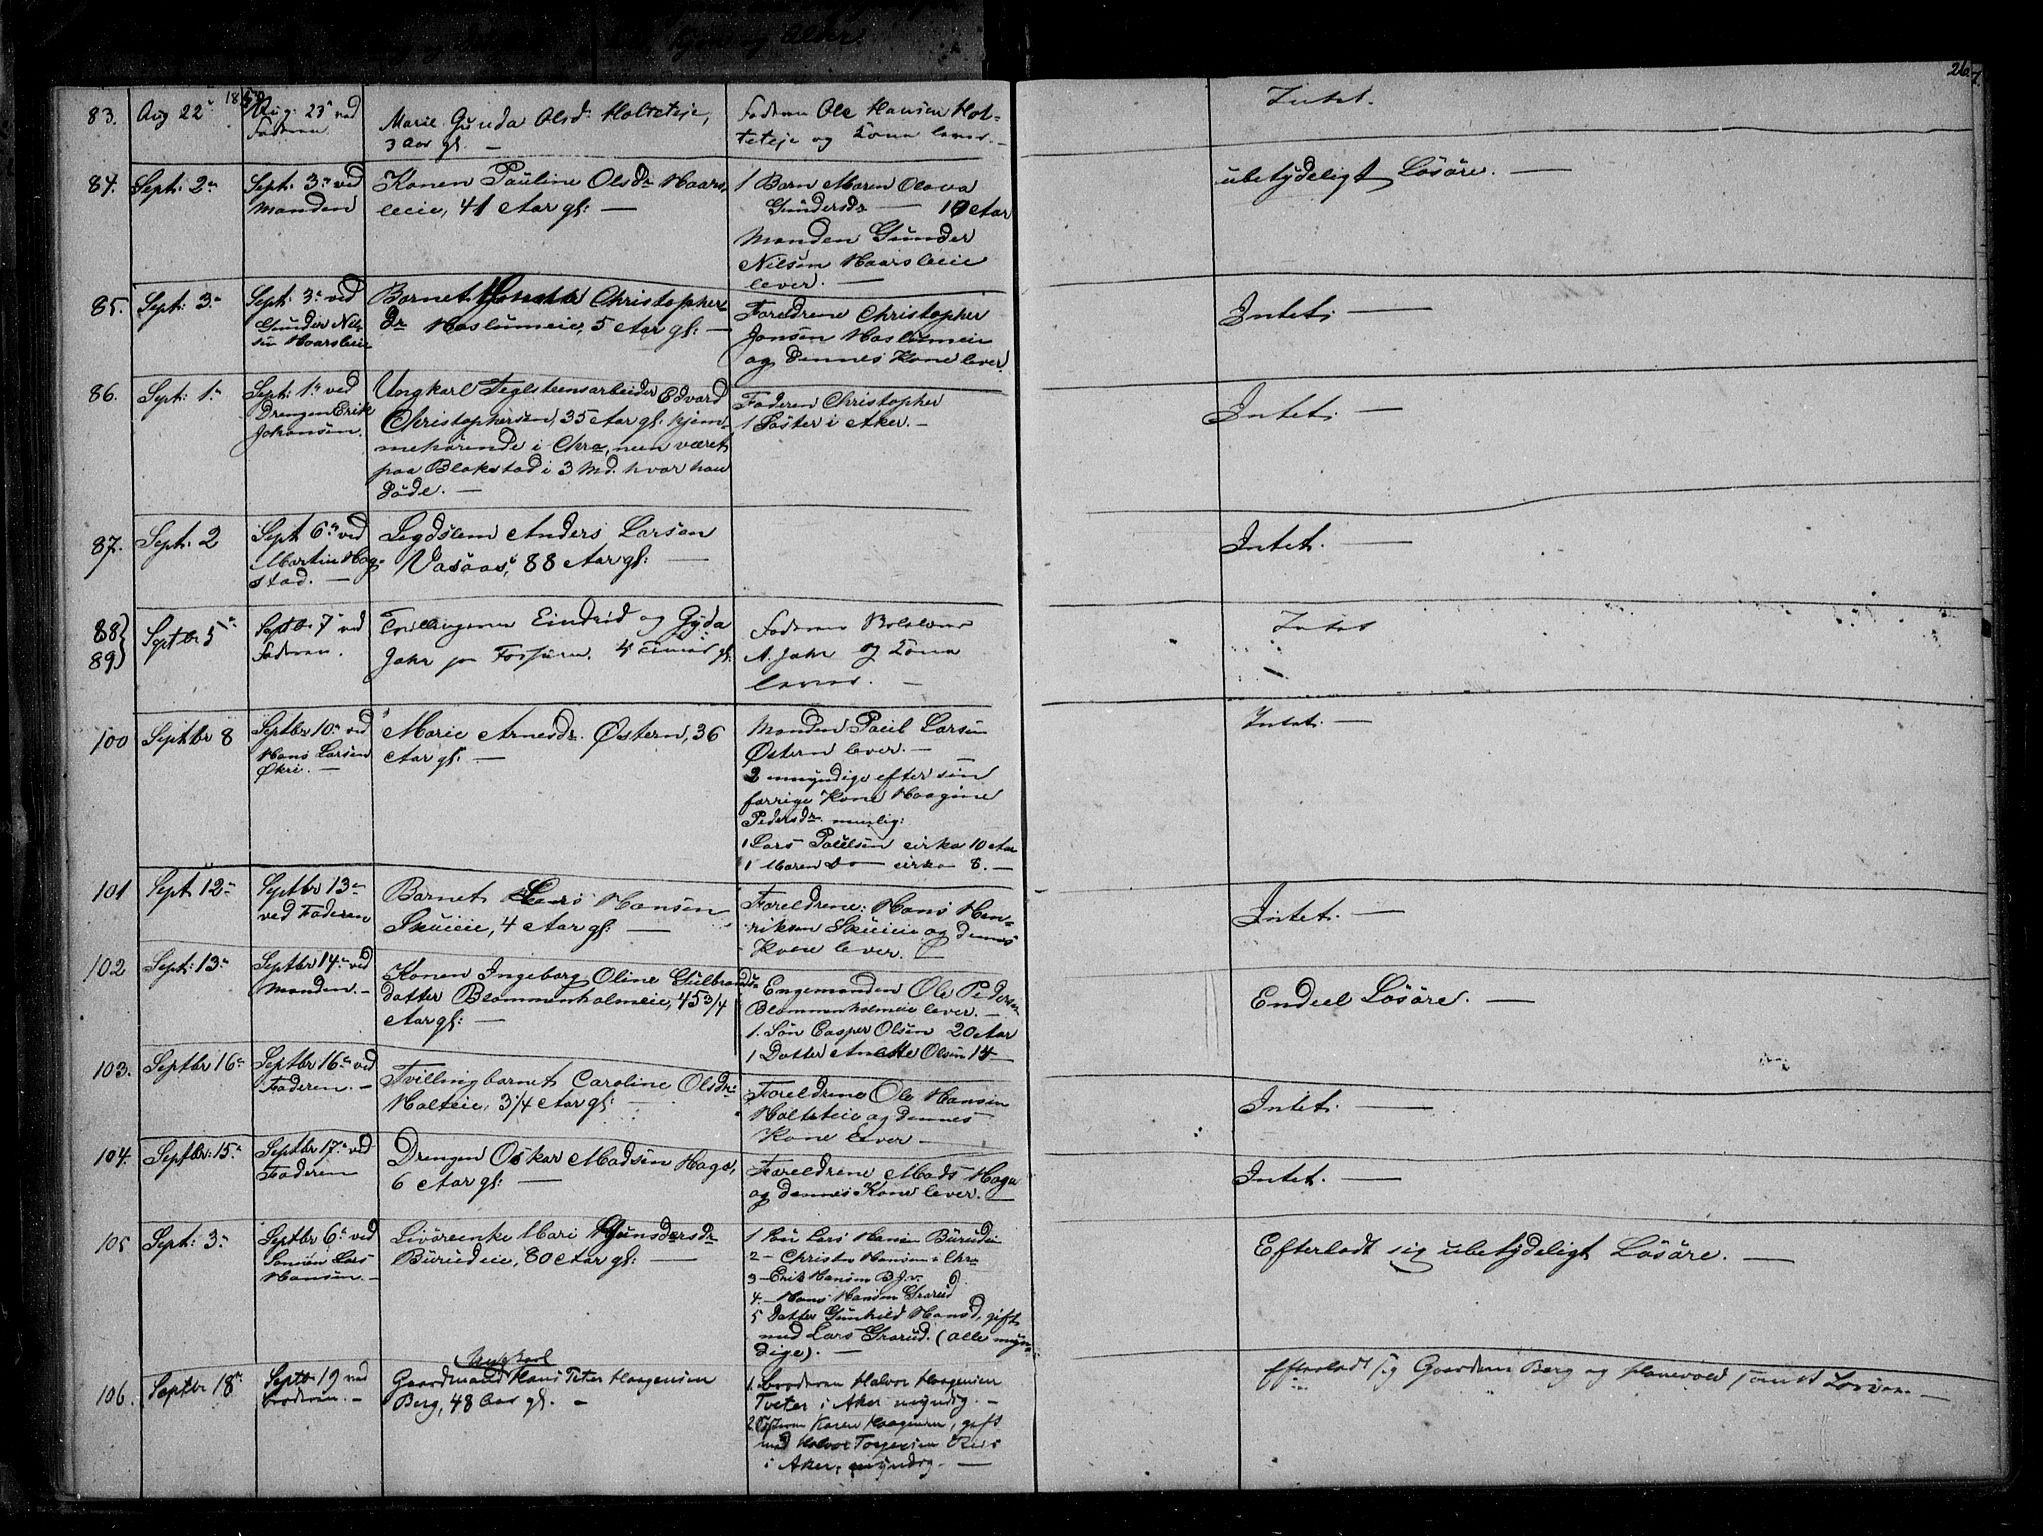 267
83. Aug 22. Aug. 23 ved Faderen. Marie Gunda Olsd. Holteteje, 3 Aar gl. — Faderen Ole Hansen Holteteje og Kone lever. — Intet.
84. Sept: 2. Sept: 3. ved Manden Konen Pauline Olsdr Haarsleeie, 41 Aar gl: — 1 Barn Maren Olava Gundersdr — 10 Aar
Manden Gunder Nilsen Haarsleeie lever. — ubetydeligt Løsøre. —
85. Sept: 3. Sept: 3. ved Gunder Nilsen Haarsleeie Barnet Christophersdr Haslumeie, 5 Aar gl: — Foreldrene Christopher Jonsen Haslumeie og dennes Kone lever. Intet. —
86. Sept: 1. Sept: 1. ved Drengen Erik Johansen. Ungkarl Teglsteensarbeider Edvard Christophersen, 35 Aar gl. hjemmehørende i Chra, men været paa Blakstad i 3 Md. hvor han døde. — Faderen Christopher
1 Søster i Aker. — Intet. —
87. Sept: 2 Sept 6. ved Martin Hogstad. — Legdslem Anders Larsen Vasaas, 88 Aar gl: — Intet. —
88}
89} Septbr 5 Septbr 7 ved Faderen. Tvillingerne Eindrid og Gyda Jahr pr Fossum. 4 Timer gl: Faderen A. Jahr og Kone lever. — Intet
100 Septbr 8 Septbr 10. ved Hans Larsen Økri. — Marie Arnesdr. Østern, 36 Aar gl. — Manden Paul Larsen Østern lever. —
2 umyndige efter sin forrige Kone Haagine Pedersdr. nemlig:
1 Lars Paulsen cirka 10 Aar
1 Maren Do — cirka 8. — Intet. —
101 Sept 12. Septbr 13. ved Faderen Barnet Lars Hansen Skuieie, 4 Aar gl: — Foreldrene: Hans Henriksen Skuieie og dennes Kone lever. Intet. —
102 Sept: 13. Septbr 14. ved Manden. — Konen Ingeborg Oline Gulbrandsdatter Blommenholmeie, 45 3/4 Aar gl: — Engemanden Ole Pedersen Blommenholmeie lever. —
1. Søn Casper Olsen 20 Aar
1 Datter Anette Olsen 14 — Endeel Løsøre. —
103. Septbr 16. Septbr 16. ved Faderen. — Tvillingbarnet Caroline Olsdr. Holteie, 3 1/4 Aar gl: — Foreldrene Ole Hansen Holteteie og dennes Kone lever — Intet. —
104. Septbr: 15. Septbr 17. ved Faderen Drengen Oskar Madsen Haga, 6 Aar gl: — Foreldrene Mads Haga og dennes Kone lever. — Intet. —
105 Sept: 3. Septbr 6. ved Sønnen Lars Hansen. — Livøreenke Mari Gundersdr Burudeie, 80 Aar gl: — 1 Søn Lars Hansen Burudeie
2 — Christen Hansen i Chra
3 — Erik Hansen
4. — Hans Hansen Grarud
5 Datter Gunhild Hansd, gift med Lars Grarud. (alle myndige). — Efterladt sig ubetydeligt Løsøre. —
106. Septbr 18. Septbr 19 ved Broderen. — Ungkarl Gaardmand Hans Peter Haagensen Berg, 48 Aar gl. — 1. Broderen Halvor Haagensen Tveter i Aker myndig. —
2 Søsteren Karen Haagensen, gift med Halvor Torgersen i Aker, myndig. — Efterladt sig Gaarden Berg og samt Løsøre. —